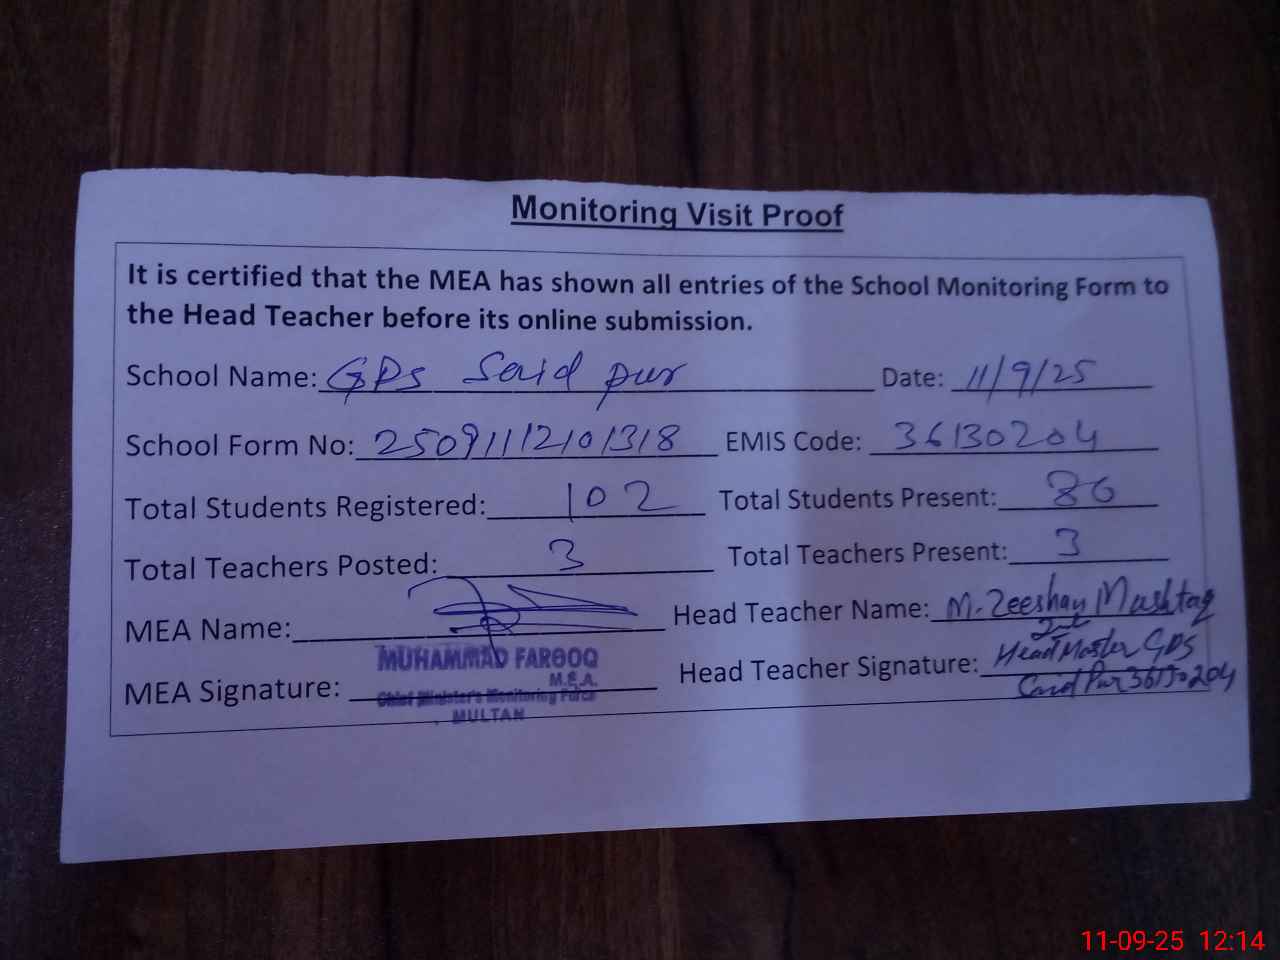 Monitoring Visit Proof
It is certified that the MEA has shown all entries of the School Monitoring Form to
the Head Teacher before its online submission.
School Name: GPS Said pur Date: 11/9/25
School Form No: 25091112101318 EMIS Code: 36130204
Total Students Registered: 102 Total Students Present: 86
Total Teachers Posted: 3 Total Teachers Present: 3
MEA Name: Head Teacher Name: M. Zeeshan Mushtaq
MUHAMMAD FAROOQ
M.E.A.
Chief Minister's Monitoring Force
MULTAN
MEA Signature: Head Teacher Signature: Head Master GPS
Said Pur 36130204
11-09-25 12:14